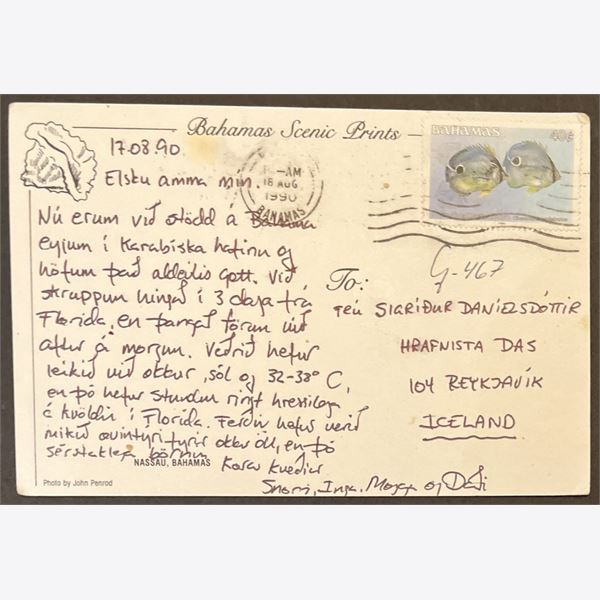 Bahamas Scenic Prints
BAHAMAS 40¢
AM
18 AUG
1990
BAHAMAS
17.08.90.
Elsku amma mín.
Nú erum við stödd á Bahama
eyjum í Karabiska hafinu og
höfum það aldeilis gott. Við
skruppum hingað í 3 daga frá
Florida, en þangað förum við
aftur á morgun. Veðrið hefur
leikið við okkur, sól og 32-38° C,
en þó hefur stundum ringt hressilega
á kvöldin í Florida. Ferðin hefur verið
mikið ævintýri fyrir okkur öll, en þó
sérstaklega börnin.
Kærar kveðjur
Snorri, Inga, Magga og Daði
G-467
To:
FRÚ SIGRÍÐUR DANÍELSDÓTTIR
HRAFNISTA DAS
104 REYKJAVÍK
ICELAND
NASSAU, BAHAMAS
Photo by John Penrod